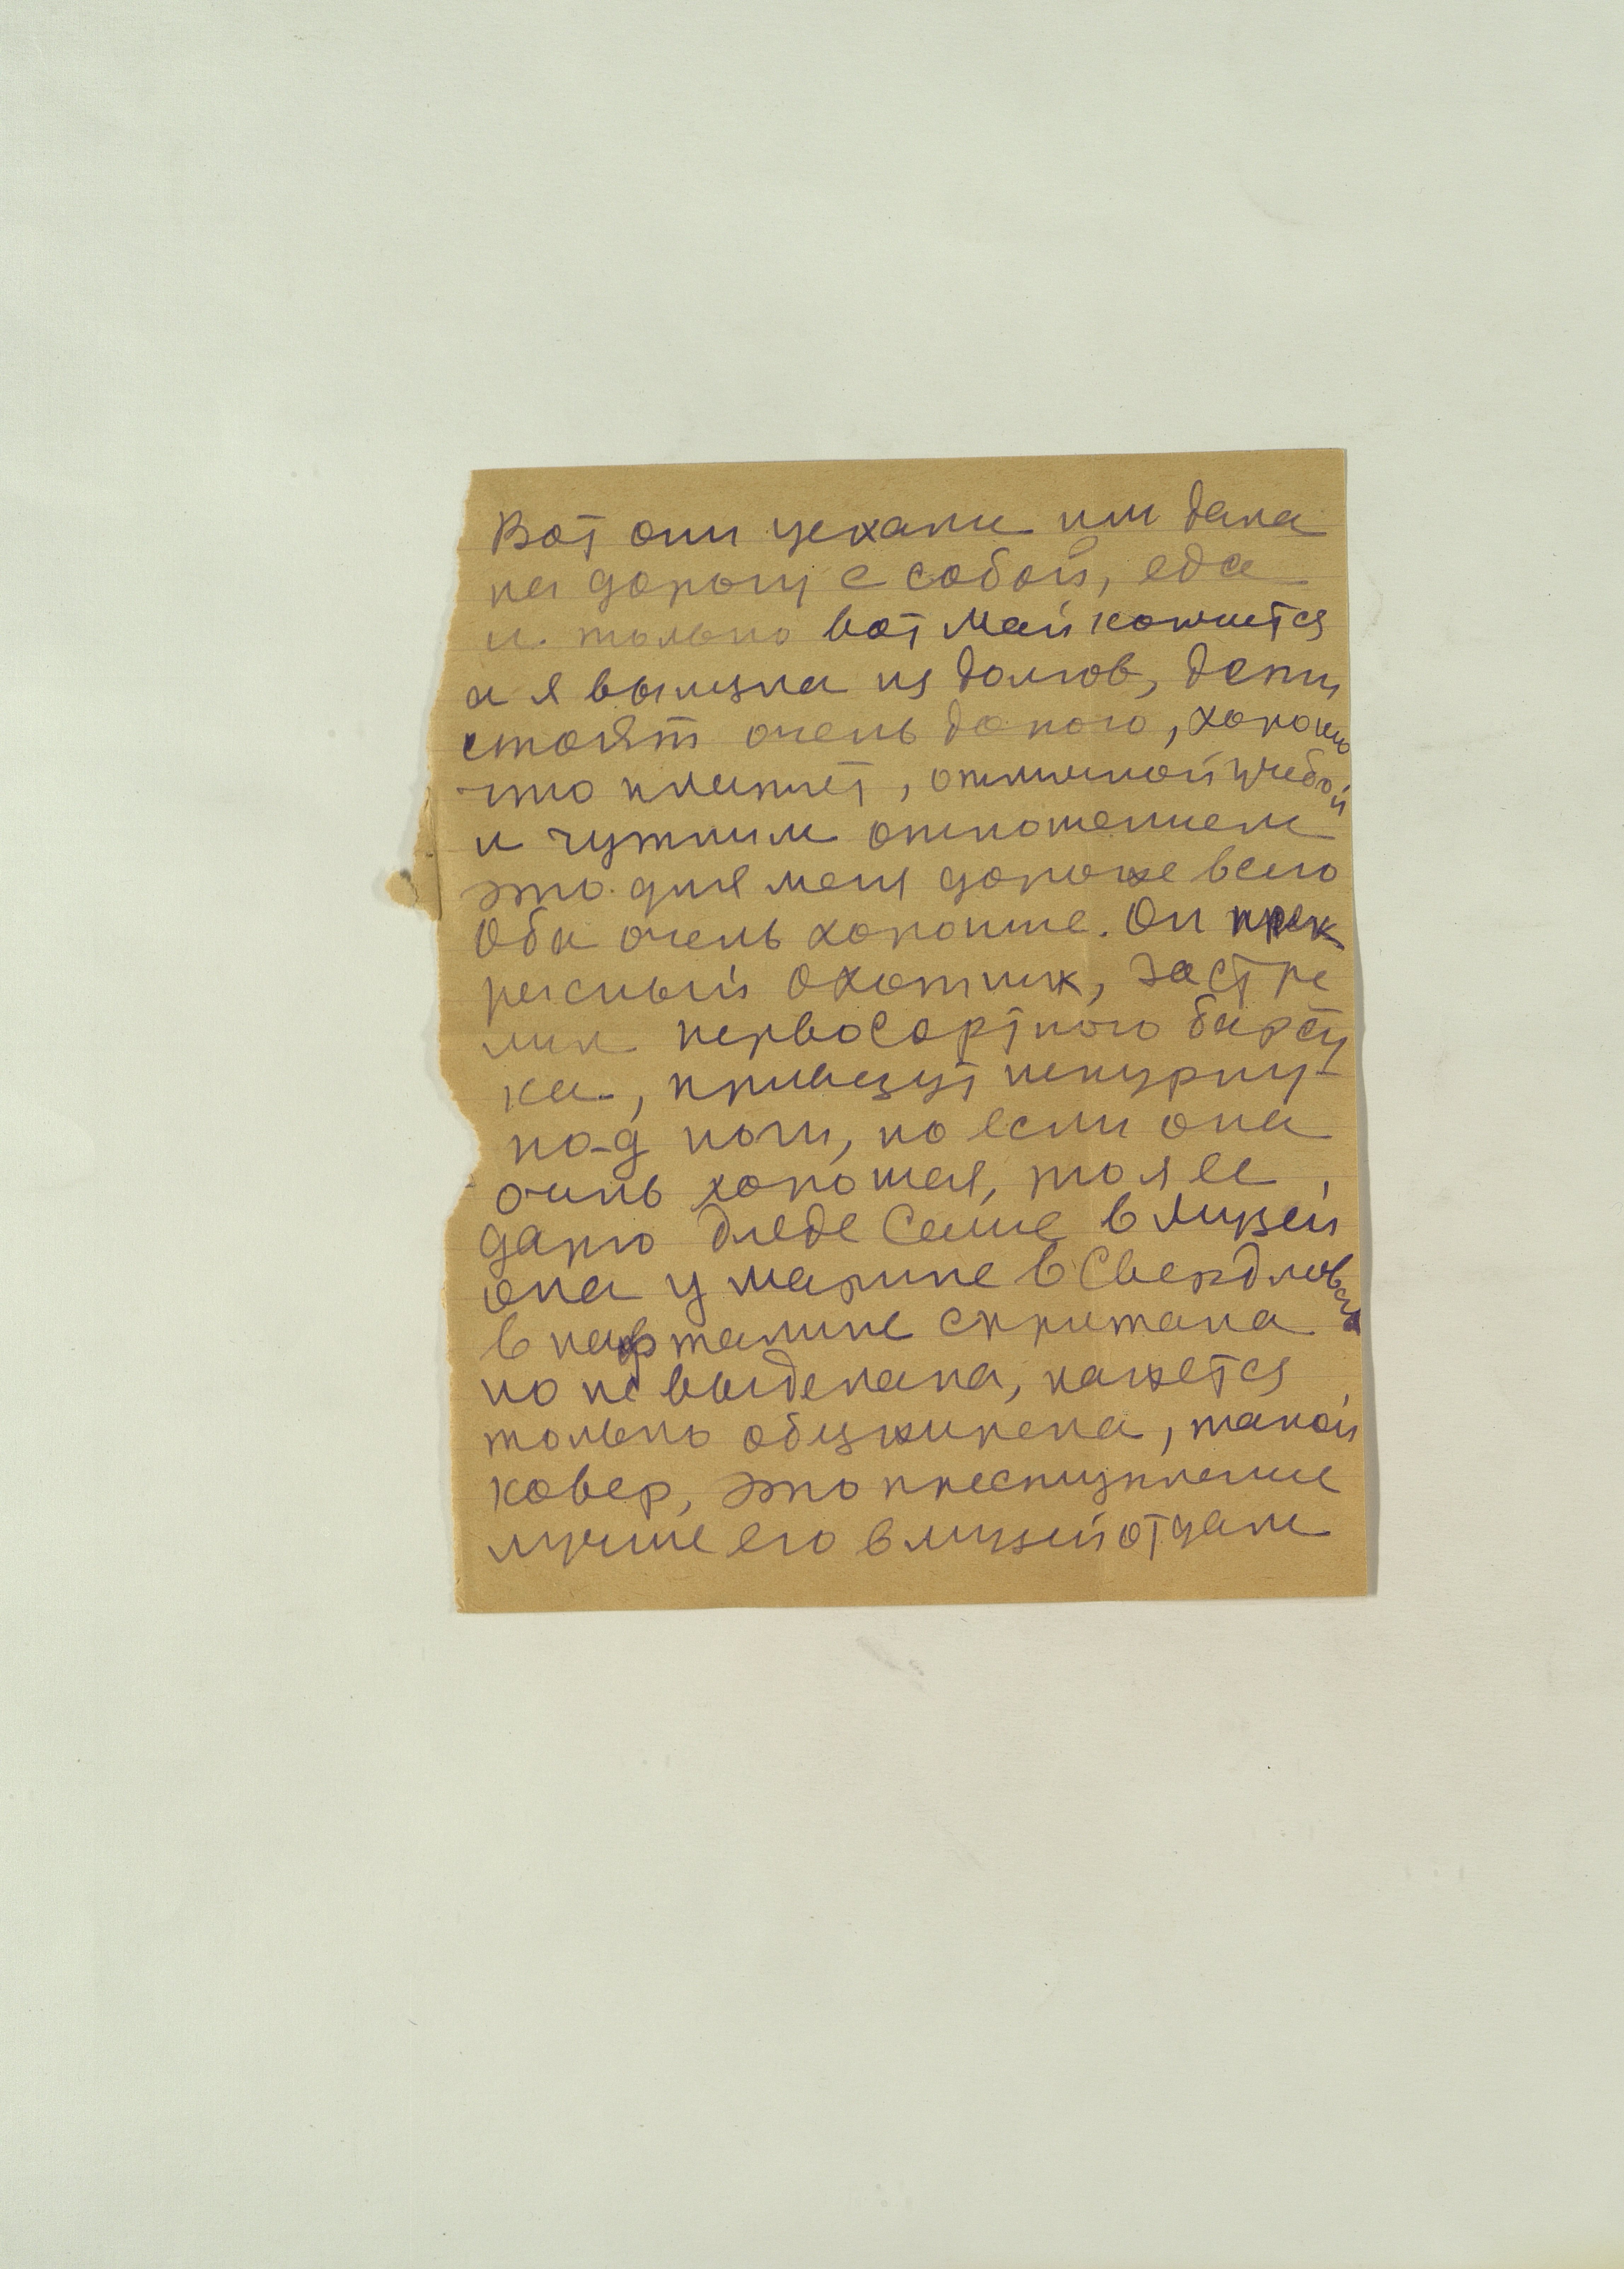 Вот они уехали им дала
на дорогу с собой, еда
и только вот май кончится
а я вылезла из долгов, дети
стоят очень дорого, хорошо
что платят, отличной учебой
и чутким отношением
это для меня дороже всего
Оба очень хорошие. Он прек
расный охотник, застре
лил первосортного барсу
ка, привезут шкурку
под ноги, но если она
очень хорошая, то я ее
дарю дяде Семе в музей
она у Марине в Свердловске
в нафталине спрятана
но не выделана, кажется
только обезжирена, такой
ковер, это преступление
лучше его в музей отдам